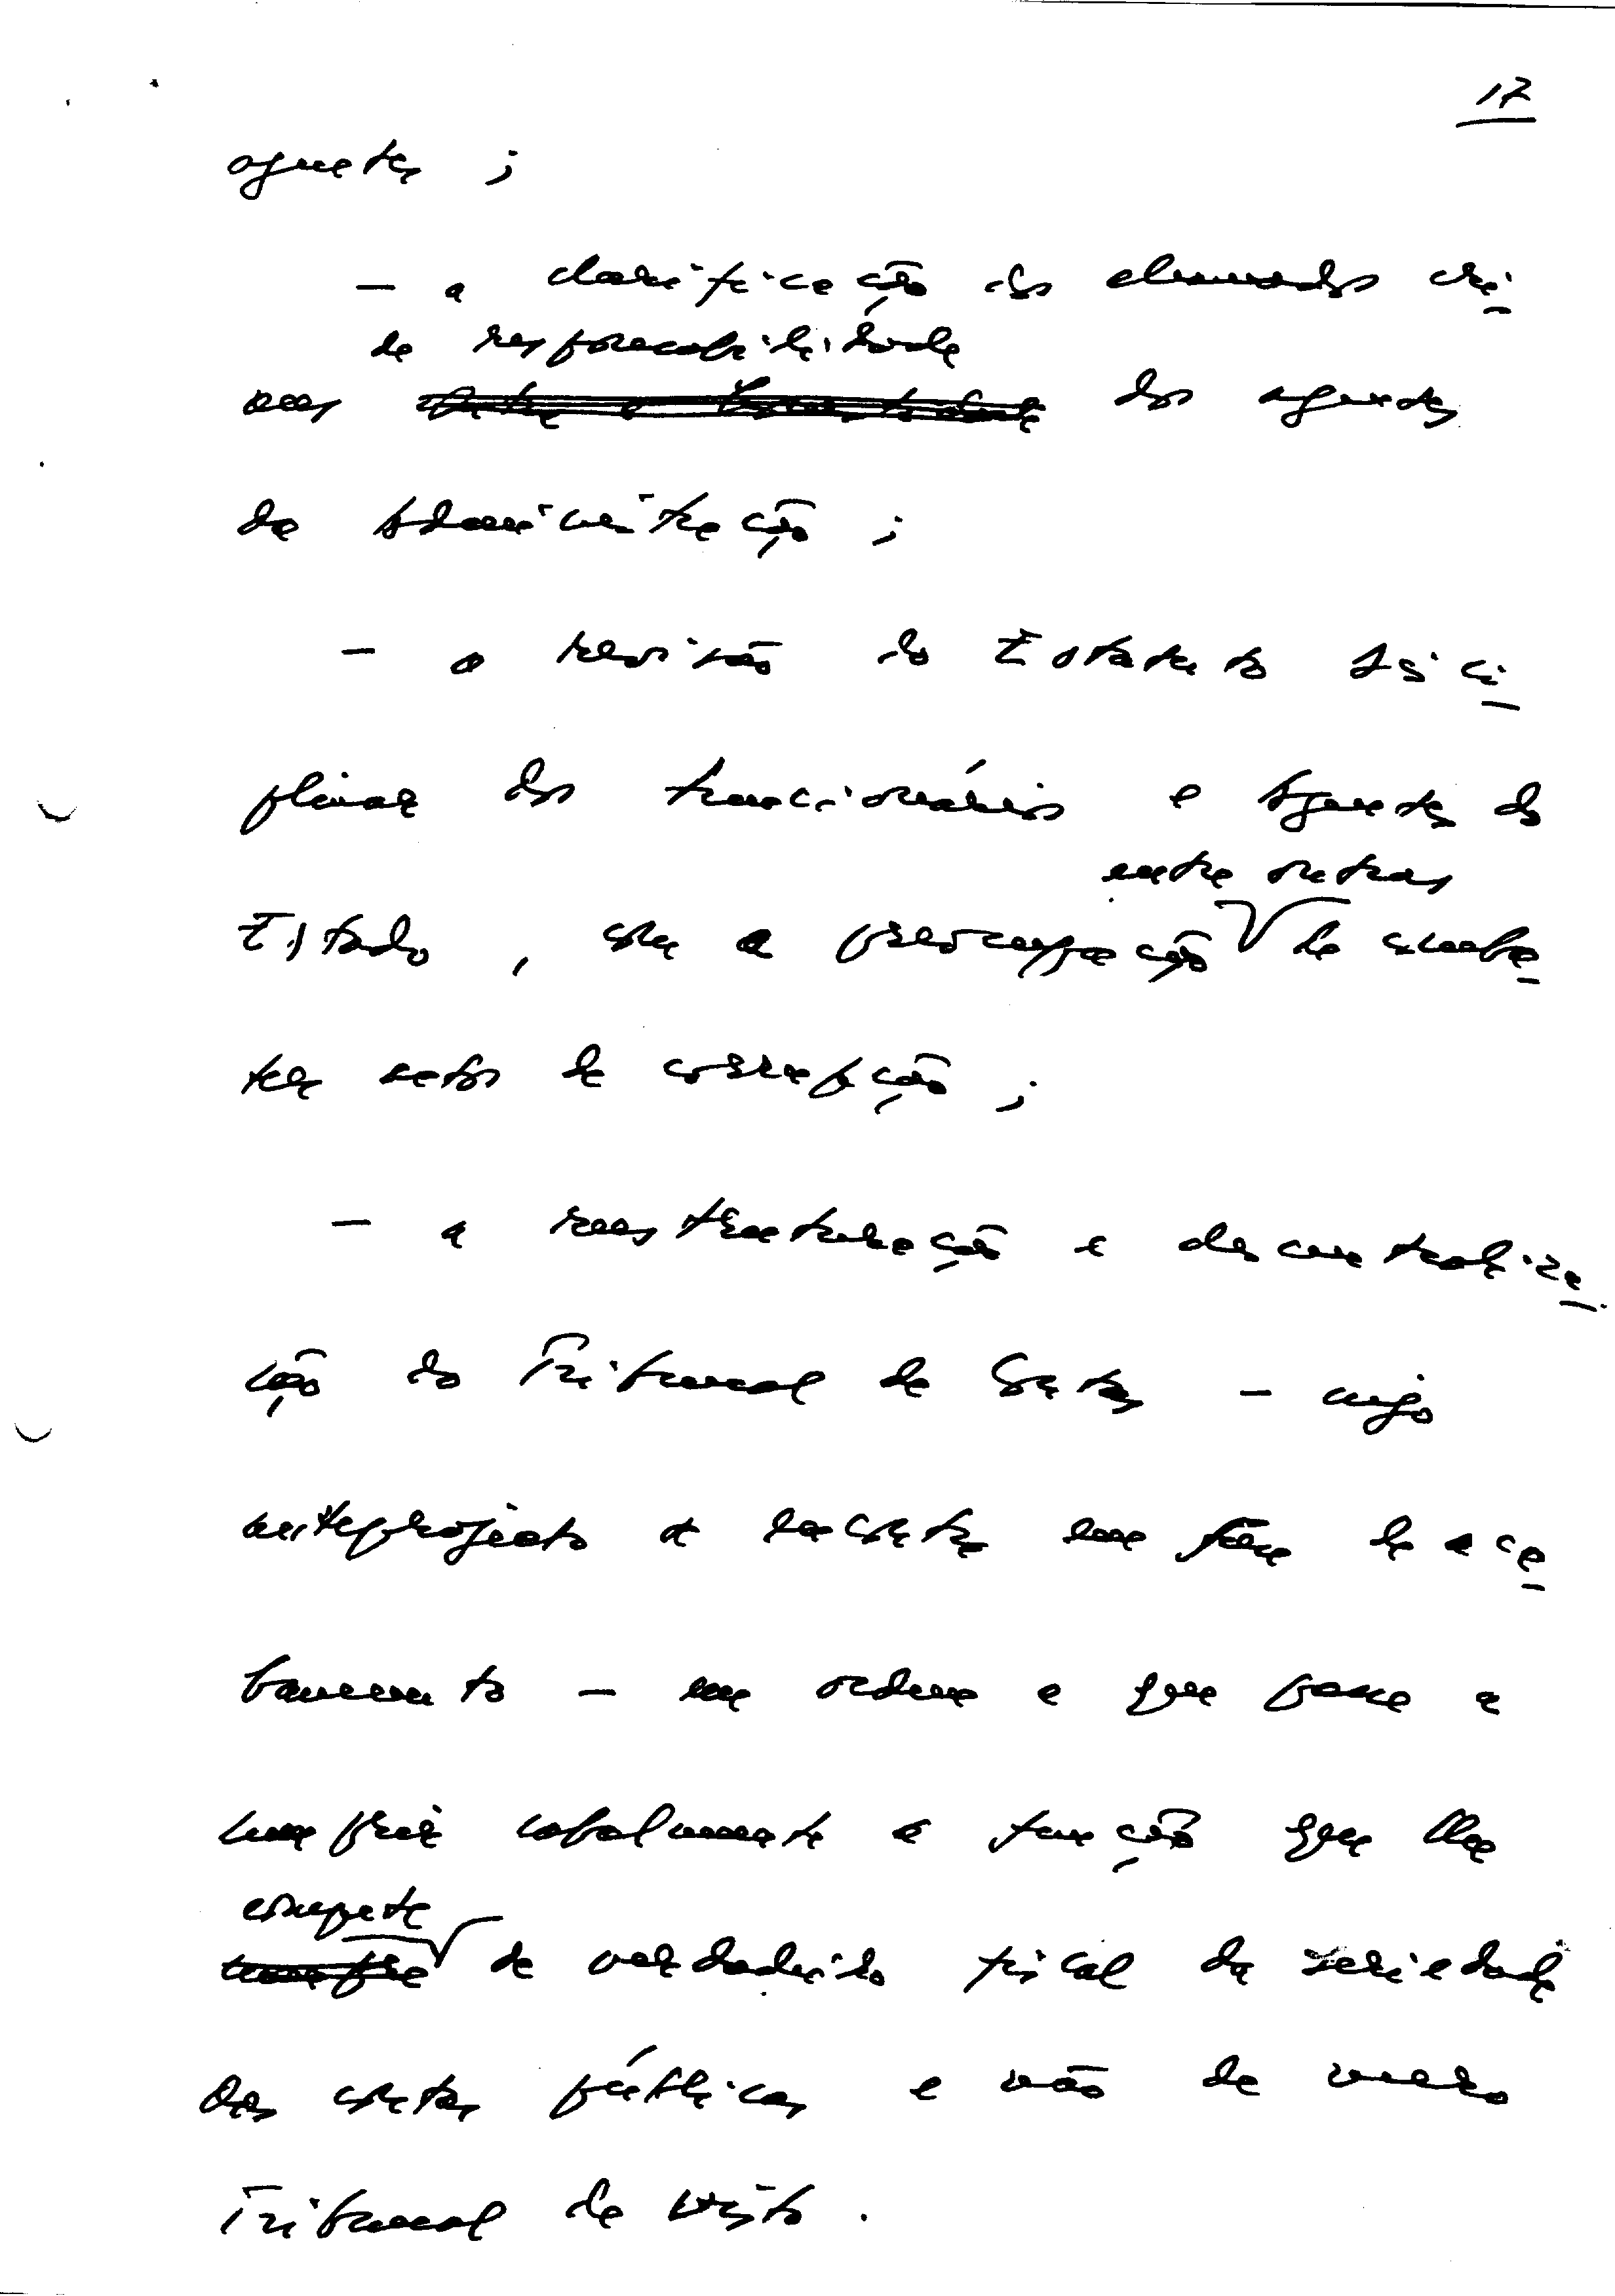 17
agentes ;
- a clarificação dos chamados cri
de responsabilidade
mes dos agentes
da Administração ;
- a revisão do Estatuto Disci
plinar dos Funcionários e Agentes do
entre outras
Estado, com a preocupação de comba
ter actos de corrupção ;
- a reestruturação e descentraliza
ção do Tribunal de Contas - cujo
anteprojecto se encontra em fase de aca
bamento - em ordem a que passe a
cumprir cabalmente a função que lhe
compete
cumpre de verdadeiro fiscal da seriedade
das contas públicas e não de mero
Tribunal de Visto .